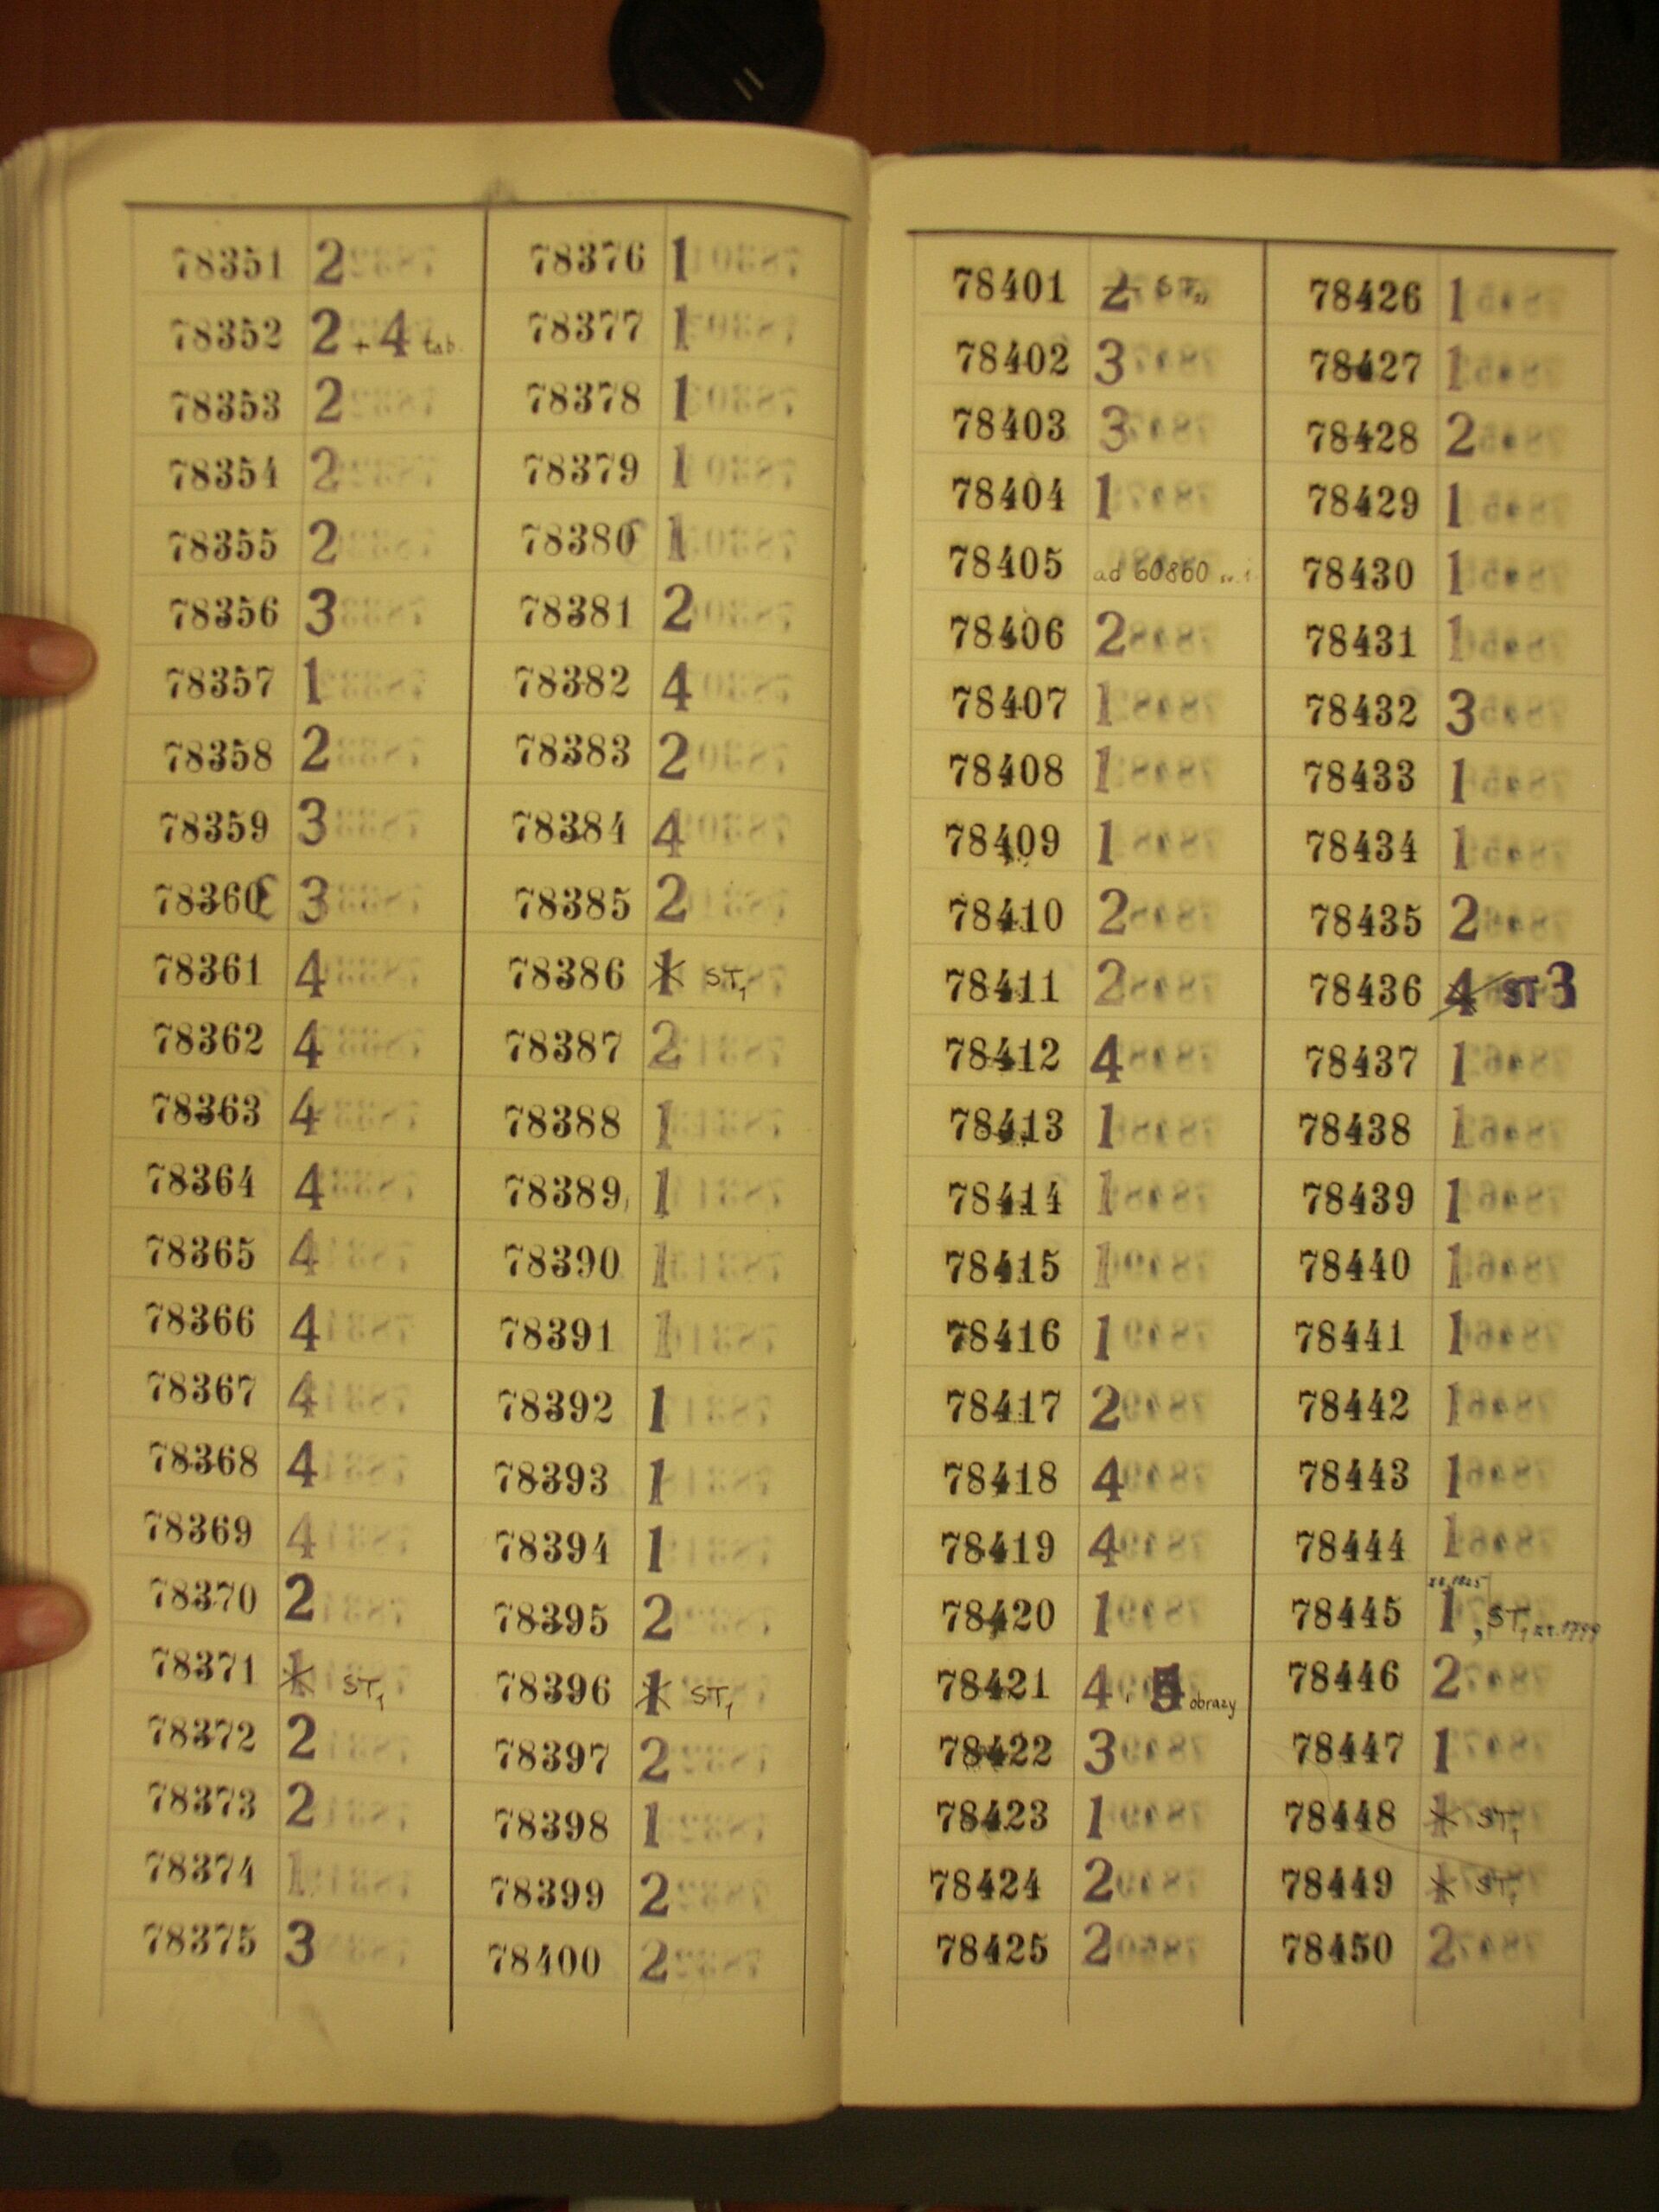 78351 2
78352 2 + 4 tab.
78353 2
78354 2
78355 2
78356 3
78357 1
78358 2
78359 3
78360 3
78361 4
78362 4
78363 4
78364 4
78365 4
78366 4
78367 4
78368 4
78369 4
78370 2
78371 1 ST1
78372 2
78373 2
78374 1
78375 3
78376 1
78377 1
78378 1
78379 1
78380 1
78381 2
78382 4
78383 2
78384 4
78385 2
78386 1 ST1
78387 2
78388 1
78389 1
78390 1
78391 1
78392 1
78393 1
78394 1
78395 2
78396 1 ST1
78397 2
78398 1
78399 2
78400 2
78401 2 ST
78402 3
78403 3
78404 1
78405 ad 60860
78406 2
78407 1
78408 1
78409 1
78410 2
78411 2
78412 4
78413 1
78414 1
78415 1
78416 1
78417 2
78418 4
78419 4
78420 1
78421 4, obrazy
78422 3
78423 1
78424 2
78425 2
78426 1
78427 1
78428 2
78429 1
78430 1
78431 1
78432 3
78433 1
78434 1
78435 2
78436 4 ST 3
78437 1
78438 1
78439 1
78440 1
78441 1
78442 1
78443 1
78444 1
78445 1, ST1
78446 2
78447 1
78448 1 ST1
78449 1 ST1
78450 2